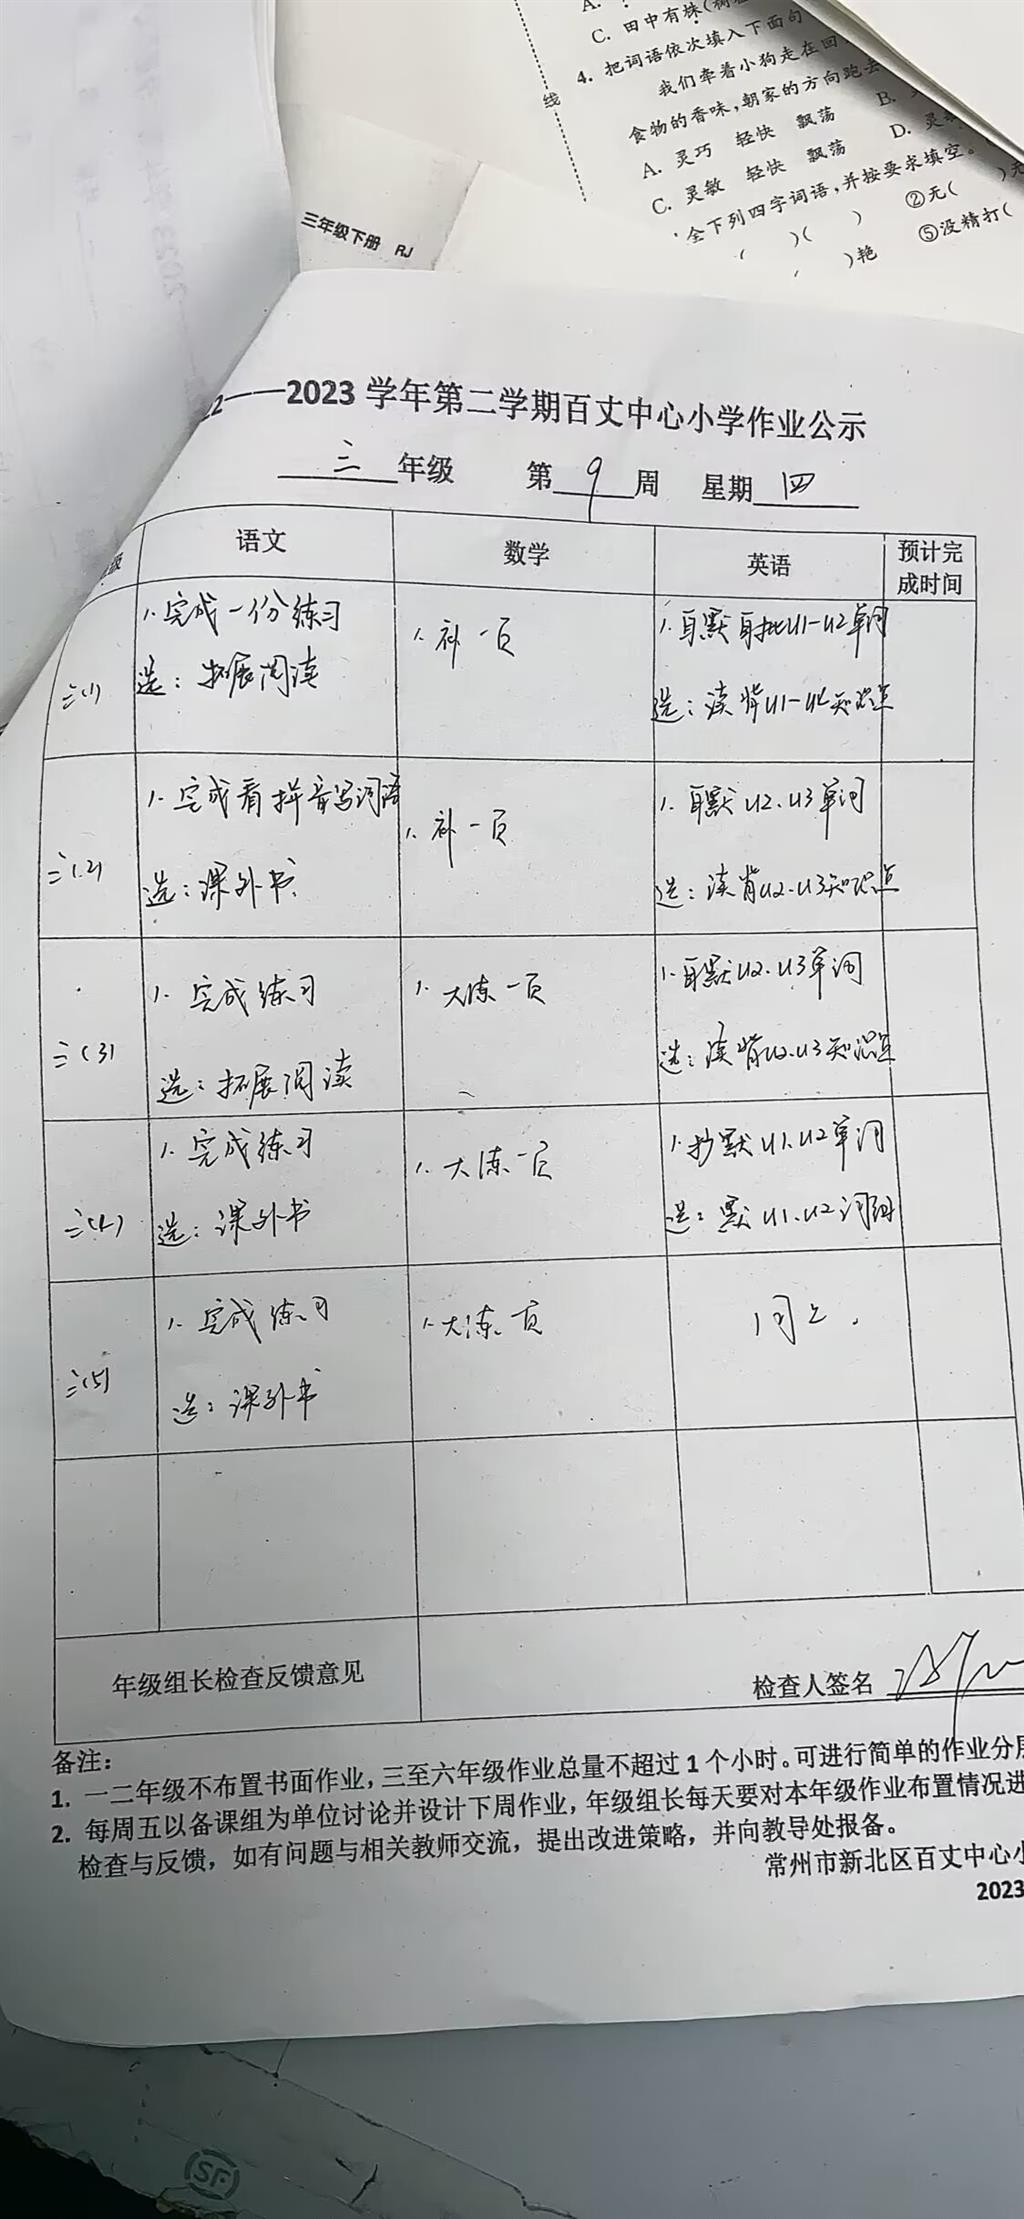 A.
C. 田中有株(
4. 把词语依次填入下面句
我们牵着小狗走在回
食物的香味,朝家的方向跑去
A. 灵巧 轻快 飘荡 B.
C. 灵敏 轻快 飘荡 D. 灵
全下列四字词语,并按要求填空。
( )( ) ②无( )无
( )艳 ⑤没精打(
线
三年级下册 RJ
22——2023 学年第二学期百丈中心小学作业公示
三 年级 第 9 周 星期 四
级 语文 数学 英语 预计完成时间
三(1)
1. 完成一份练习
选：拓展阅读
1. 补一页
1. 自默自批U1-U2单词
选：读背U1-U2知识点
三(2)
1. 完成看拼音写词语
选：课外书
1. 补一页
1. 自默U2.U3单词
选：读背U2.U3知识点
三(3)
1. 完成练习
选：拓展阅读
1. 大练一页
1. 自默U2.U3单词
选：读背U2.U3知识点
三(4)
1. 完成练习
选：课外书
1. 大练一页
1. 抄默U1.U2单词
选：默U1.U2词组
三(5)
1. 完成练习
选：课外书
1. 大练一页
同上.
年级组长检查反馈意见
检查人签名
备注：
1. 一二年级不布置书面作业，三至六年级作业总量不超过 1 个小时。可进行简单的作业分层
2. 每周五以备课组为单位讨论并设计下周作业，年级组长每天要对本年级作业布置情况进
检查与反馈，如有问题与相关教师交流，提出改进策略，并向教导处报备。
常州市新北区百丈中心小
2023
SF